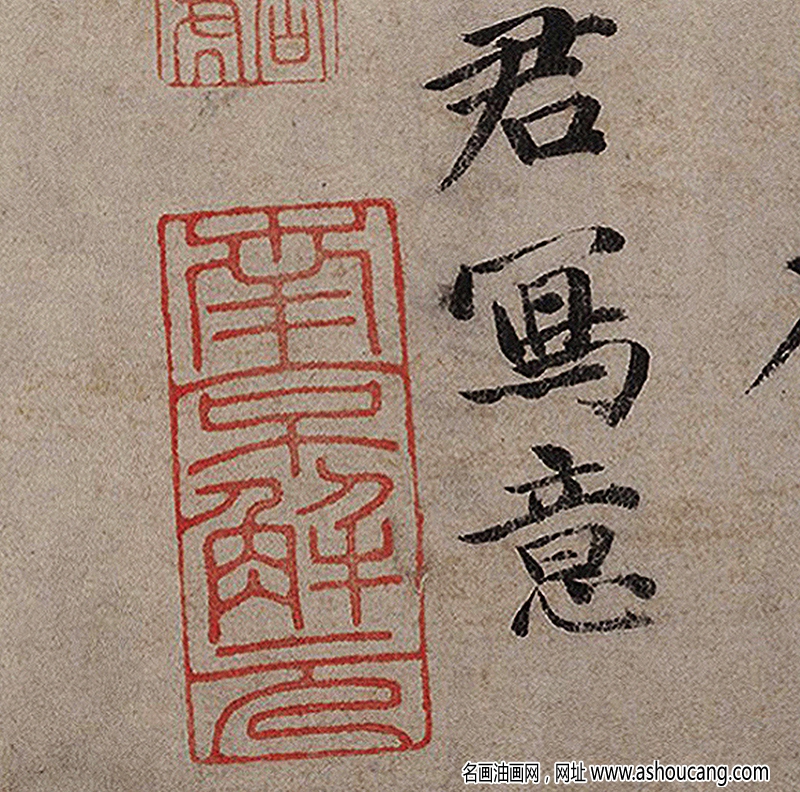 君寫意
南京解元
名画油画网，网址 www.ashoucang.com